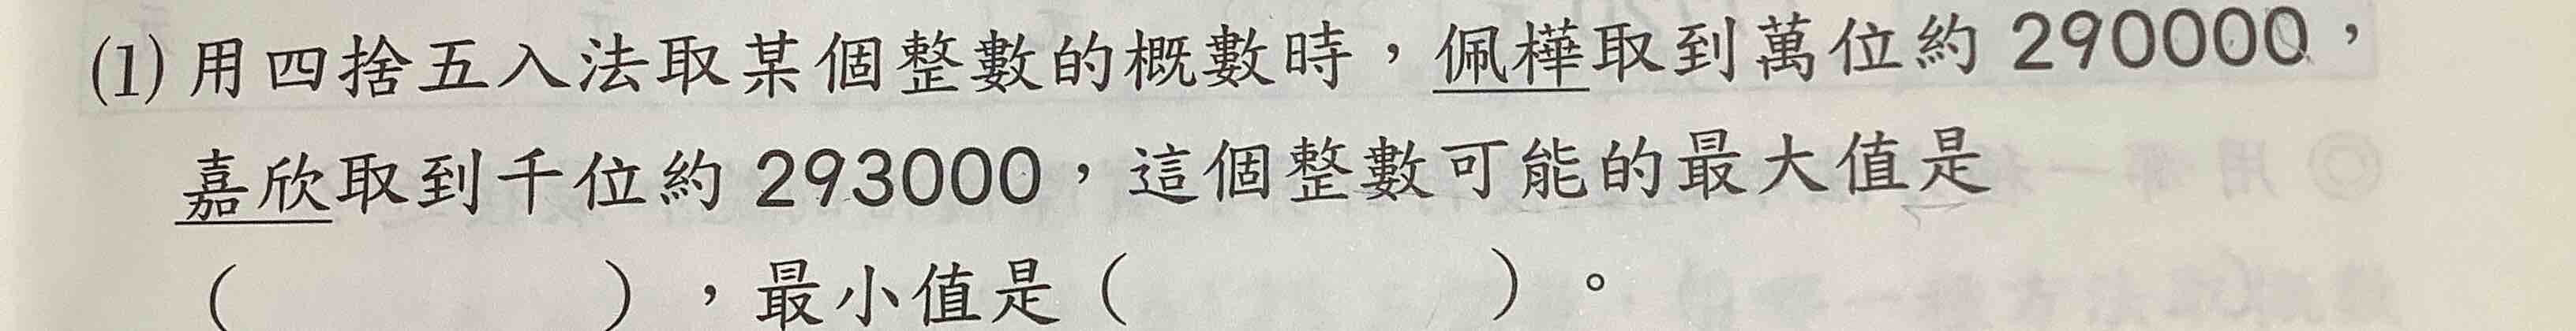 (1) 用四捨五入法取某個整數的概數時，佩樺取到萬位約 290000，
嘉欣取到千位約 293000，這個整數可能的最大值是
（　　　　　），最小值是（　　　　　）。